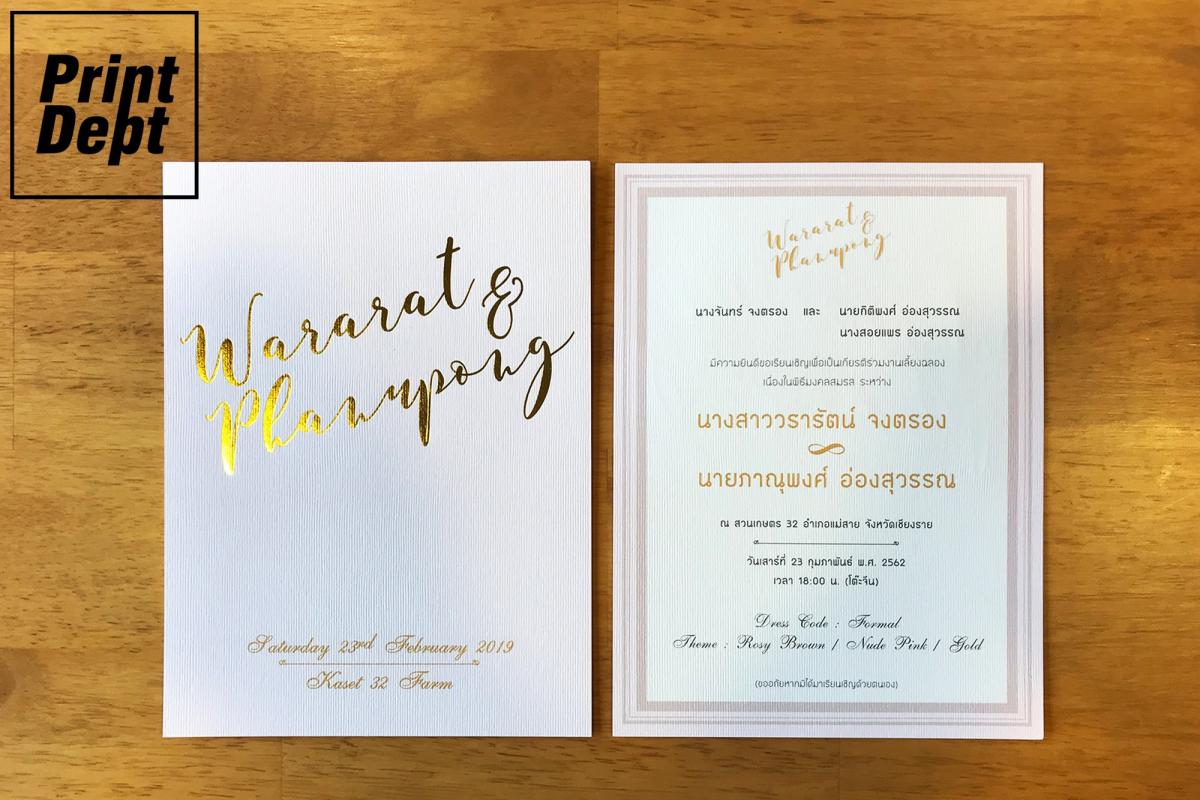 Print
Dept
Wararat &
Phanupong
Saturday 23rd February 2019
Kaset 32 Farm
Wararat &
Phanupong
นางจันทร์ จงตรอง และ นายกิติพงศ์ อ่องสุวรรณ
นางสอยแพร อ่องสุวรรณ
มีความยินดีขอเรียนเชิญเพื่อเป็นเกียรติร่วมงานเลี้ยงฉลอง
เนื่องในพิธีมงคลสมรส ระหว่าง
นางสาววรารัตน์ จงตรอง
นายภาณุพงศ์ อ่องสุวรรณ
ณ สวนเกษตร 32 อำเภอแม่สาย จังหวัดเชียงราย
วันเสาร์ที่ 23 กุมภาพันธ์ พ.ศ. 2562
เวลา 18:00 น. (โต๊ะจีน)
Dress Code : Formal
Theme : Rosy Brown / Nude Pink / Gold
(ขออภัยหากมิได้มาเรียนเชิญด้วยตนเอง)